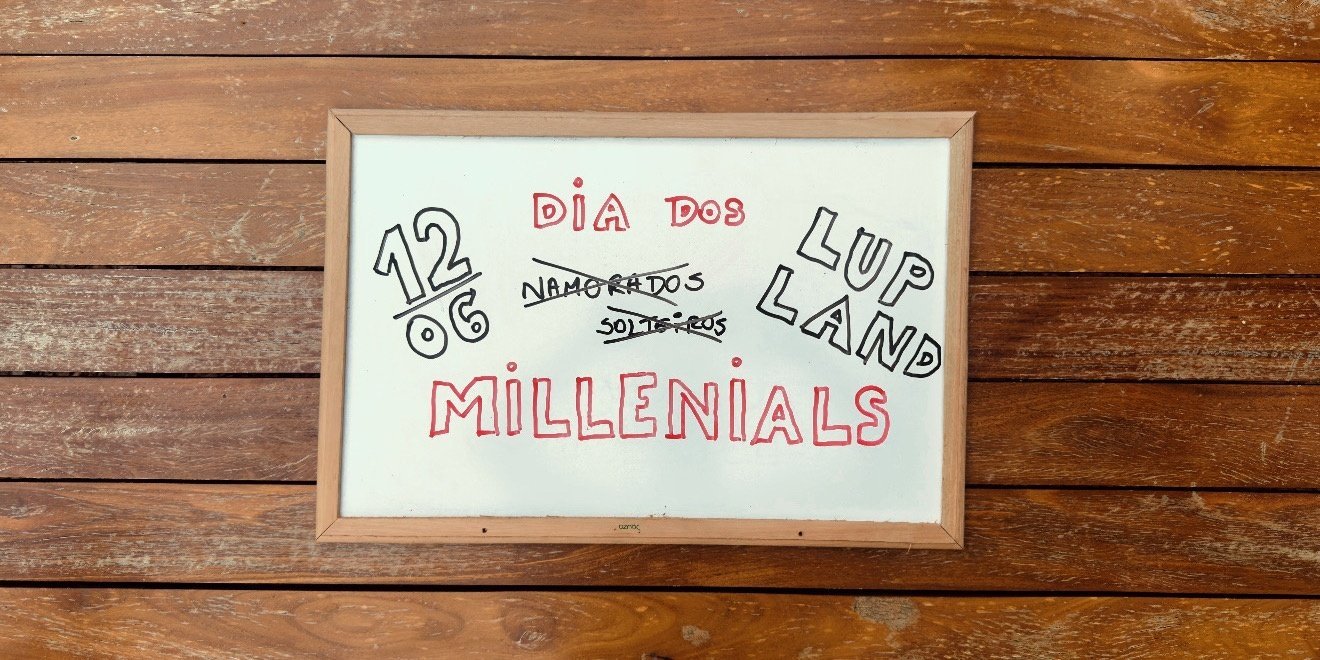 DIA DOS
NAMORADOS
SOLTEIROS
MILLENIALS
12
06
LUP
LAND